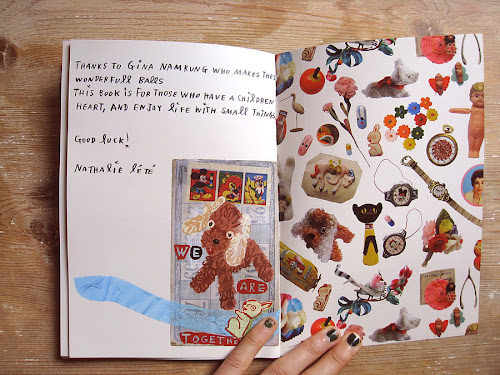 THANKS TO GINA NAMKUNG WHO MAKES THES
WONDERFULL BALLS
THIS BOOK IS FOR THOSE WHO HAVE A CHILDREN
HEART, AND ENJOY LIFE WITH SMALL THINGS
GOOD LUCK!
NATHALIE LÉTÉ
WE
ARE
TOGETHE